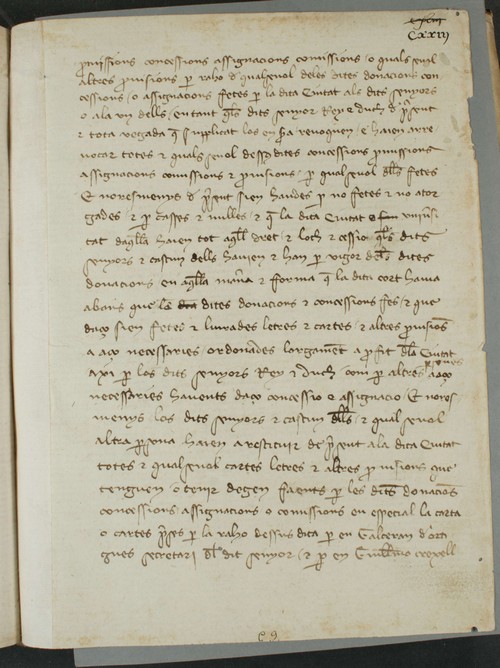 Cxxiij
p̱missions concessions assignacions comissions / o quals seuol
altres prouisions per raho d qualseuol deles dites donacions con
cessions / o assignacions fetes per la dita Ciutat als dits senyors
o ala vn dells / en tant qls dits senyor Rey e duch d p̱sent
e tota vegada q supplicat los en sia reuoquen / e haien a re
uocar totes e quals seuol dessus dites concessions prouissions
assignacions comissions e prouisions / per qualseuol dells fetes
E noresmenys d p̱sent sien haudes per no fetes e no ator
gades / e per casses e nulles / e q la dita Ciutat e vniuersi
tat daqlla haien tot aqll dret / e loch e cessio qls dits
senyors e cascun dells hauien e han per vigor deles dites
donacions en aqlla manera e forma q la dita cort hauia
abans que les dites donacions e concessions fes / e que
daço sien fetes e liurades letres e cartes / e altres prouisions
a aço necessaries / ordonades largament a profit dla Ciutat
axi per los dits senyors Rey e duch com per altres persones a aço
necessaries hauents daço concessio e assignacio / E nores
menys los dits senyors e cascun dells / e qual seuol
altra persona haien a restituir de p̱sent ala dita Ciutat
totes e qualseuols cartes letres e altres prouisions que
tenguen o tenir degen faents per les dites donacions
concessions / assignacions o comissions en especial la carta
o cartes preses per la raho dessus dita per en Galceran dorti
gues secretari dl dit senyor / e per en Guillermo crexell